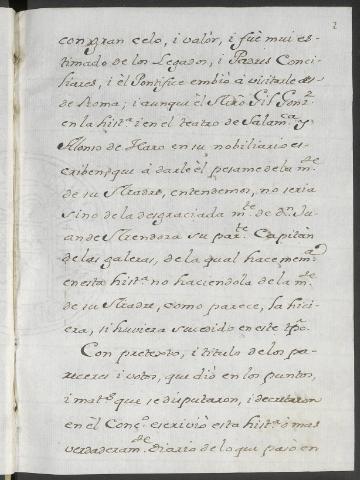 2
con gran celo, i valór, i fuè mui es-
timado de los Legados, i Padres Conci-
liares, i èl Pontifice embió à visitarle des-
de Roma; i aunque èl Mrõ. Gil Gonz.ᶻ
en la hist.ª i en el teatro de Salam.ᶜᵃ y
Alonso de Haro en su nobiliario es-
criben que à darle èl pesame de la m.ᵗᵉ
de su Madre, entendemos, no seria
sino de la desgraciada m.ᵗᵉ de Dⁿ. Ju-
an de Mendoza su par.ᵗᵉ Capitàn
de las galeras, de la qual hace mem.ª
en esta hist.ª no haciendola de la m.ᵗᵉ
de su Madre, como parece, la hici-
era, si huviera sucedido en este tp̃o.
Con pretexto, i titulo de los pa-
receres i votos, que dió en los puntos,
i mat.ˢ que se disputaron, i decretaron
en èl Conç.º escrivió esta hist.ª ò mas
verdaderam.ᵗᵉ Diario de lo que pasò en